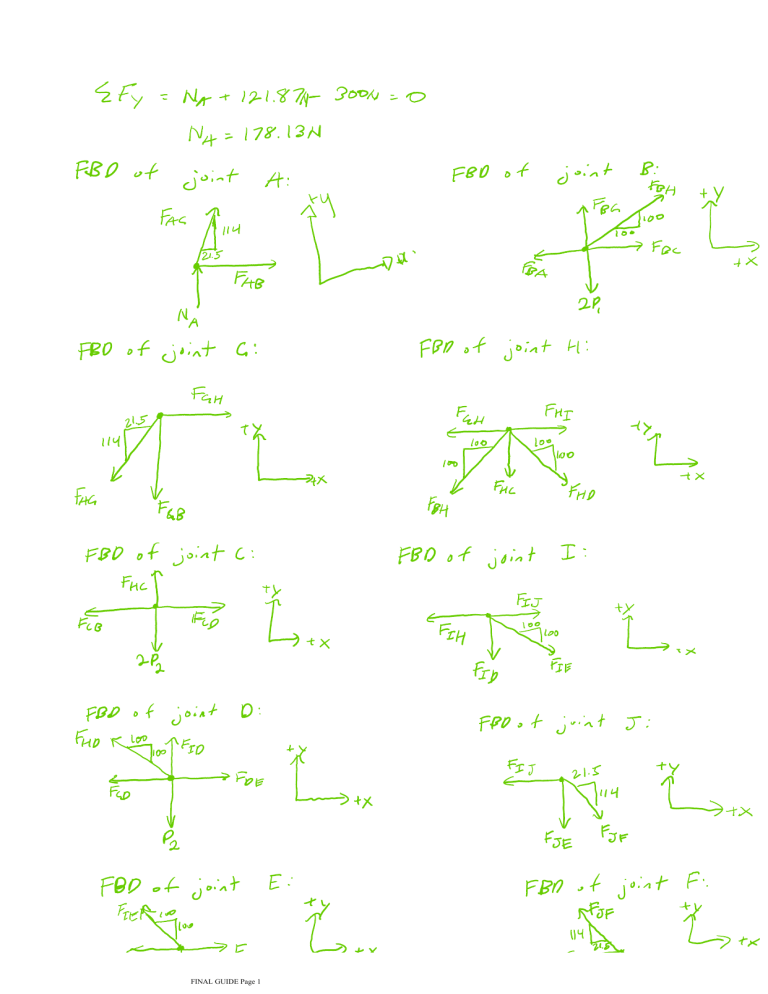 ΣFy = NA + 121.87N - 300N = 0
NA = 178.13N
FBD of joint A:
FAG
114
21.5
FAB
NA
+y
FBD of joint B:
FBH
FBG
100
100
FBC
FBA
2P1
+y
+x
FBD of joint G:
FGH
21.5
114
FAG
FGB
+y
+x
FBD of joint H:
FGH
FHI
100
100
100
100
FBH
FHC
FHD
+y
+x
FBD of joint C:
FHC
FCB
FCD
2P2
+y
+x
FBD of joint I:
FIJ
FIH
100
100
FID
FIE
+y
+x
FBD of joint D:
FHD
100
100
FID
FCD
FDE
P2
+y
+x
FBD of joint J:
FIJ
21.5
114
FJE
FJF
+y
+x
FBD of joint E:
FIE
100
100
+y
+x
FBD of joint F:
FJF
114
21.5
+y
+x
FINAL GUIDE Page 1